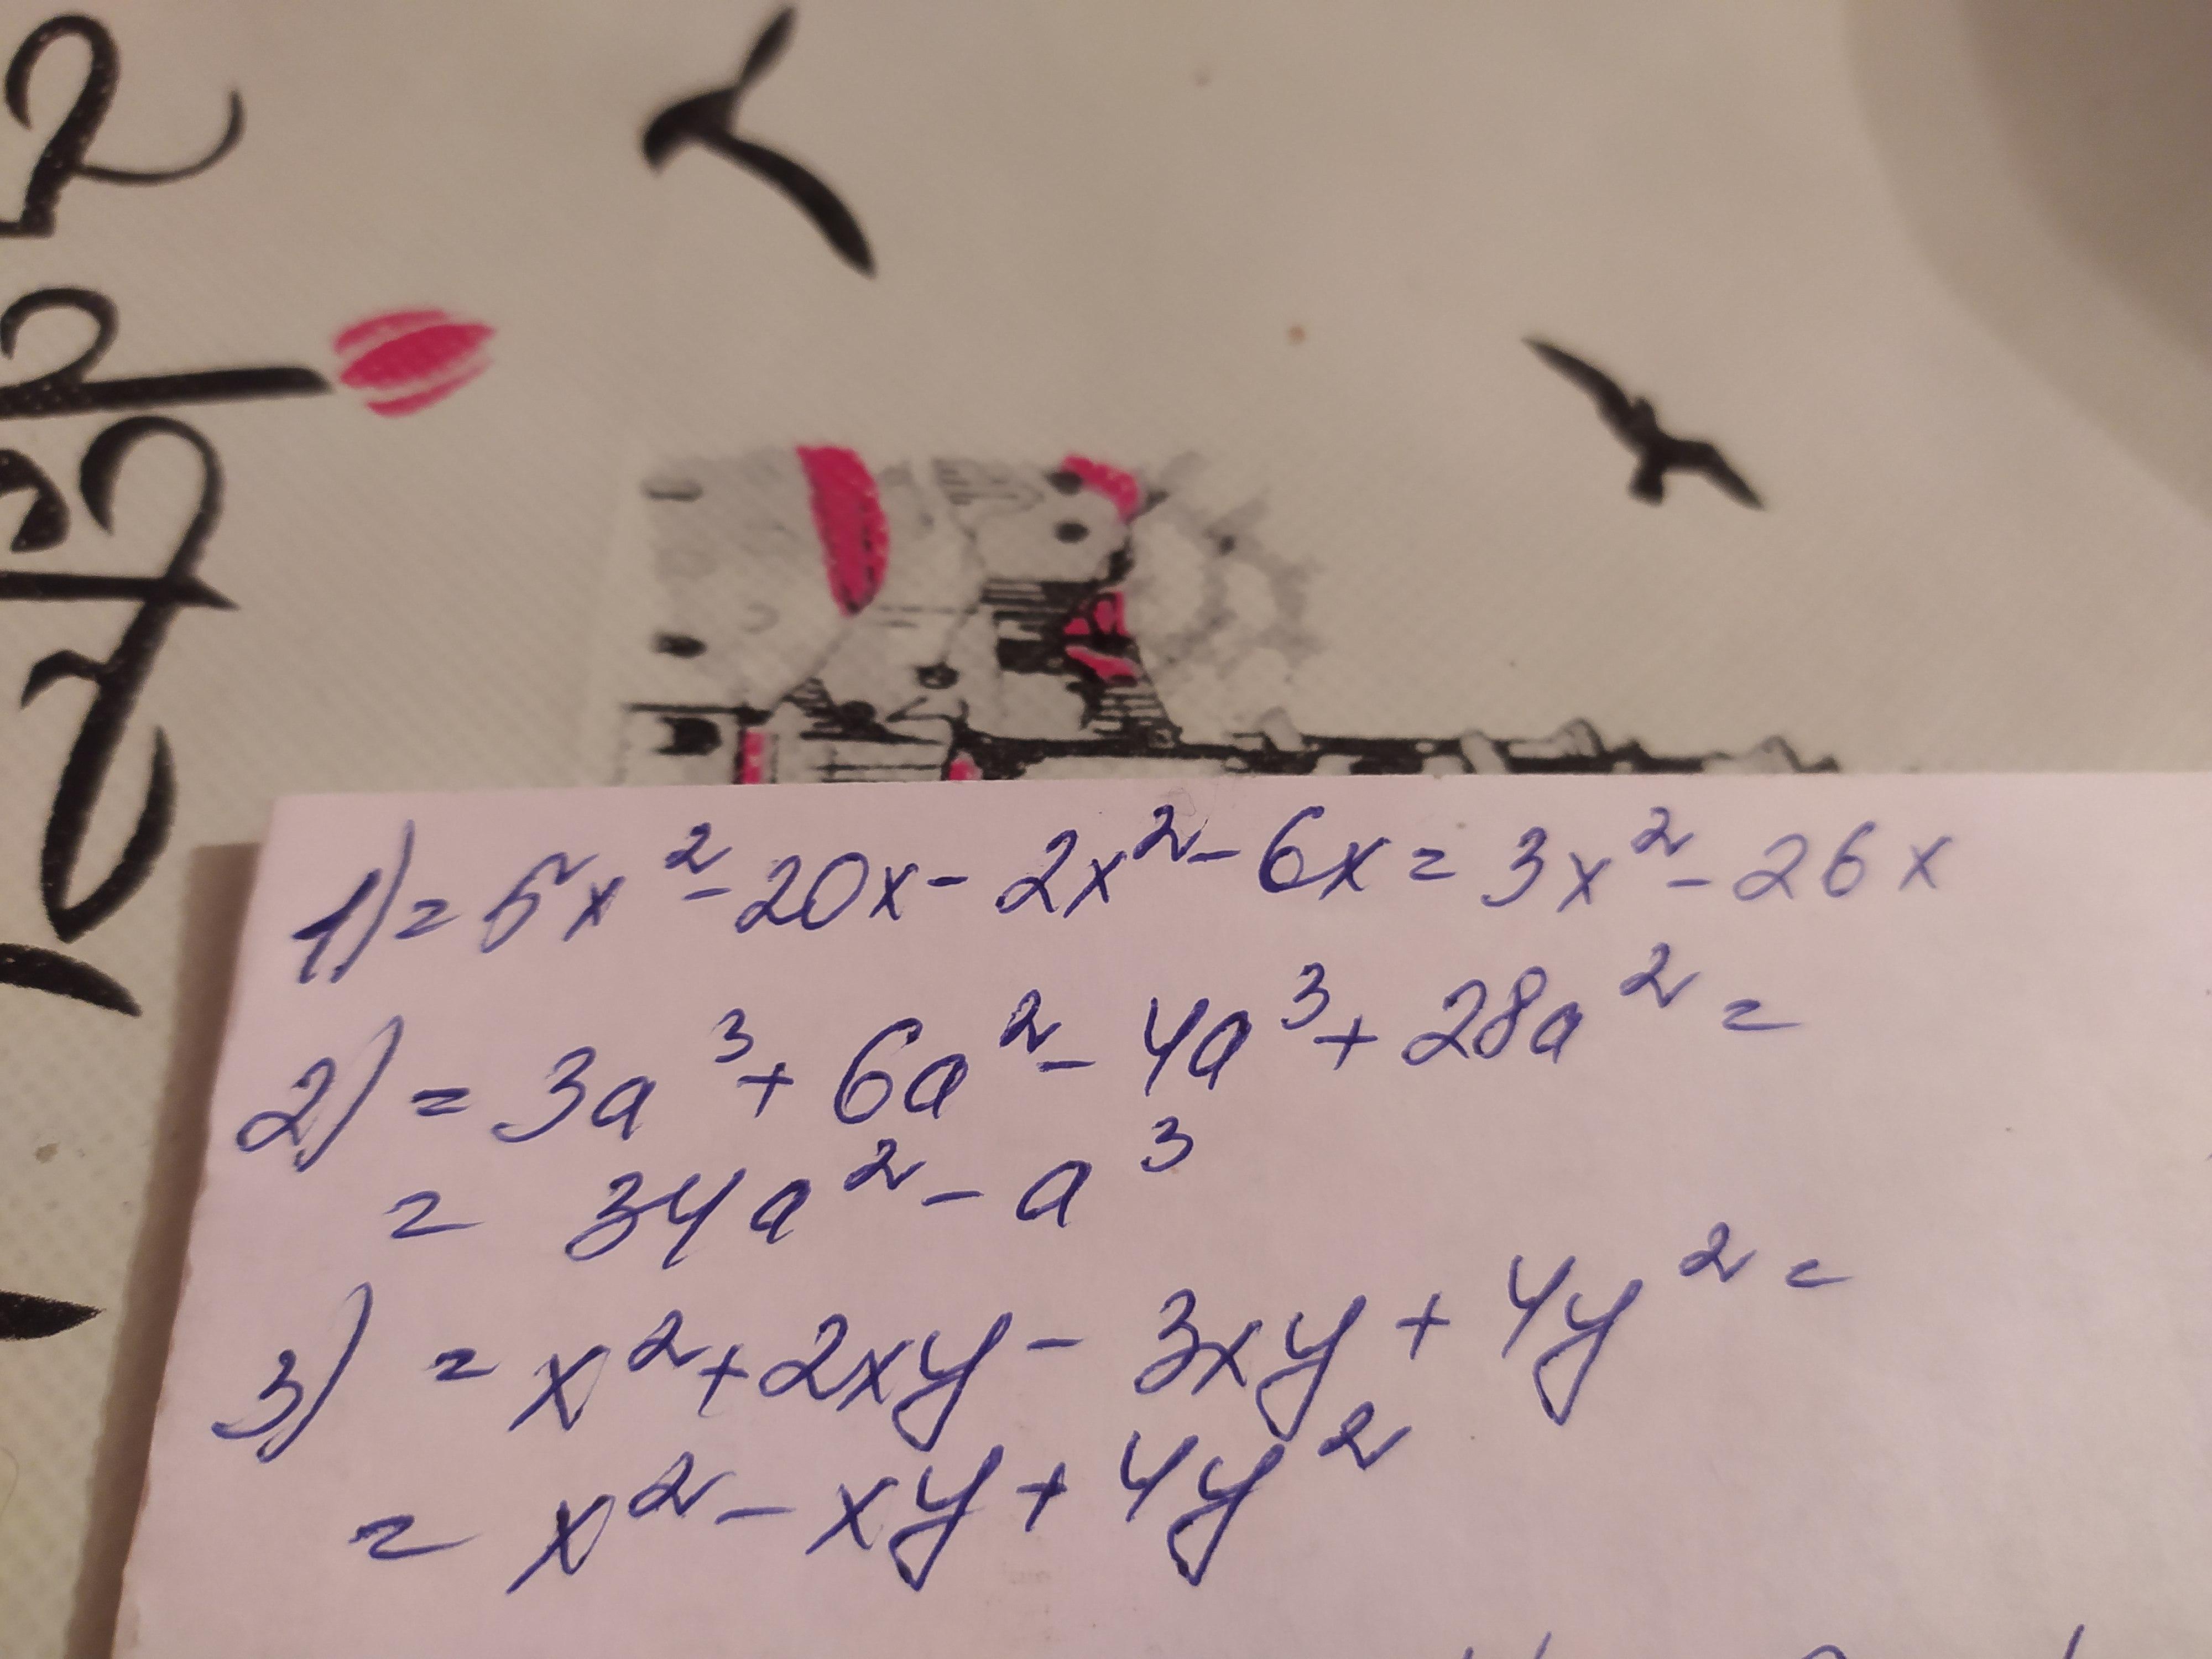 1) = 5x² - 20x - 2x² - 6x = 3x² - 26x
2) = 3a³ + 6a² - 4a³ + 28a² =
= 34a² - a³
3) = x² + 2xy - 3xy + 4y² =
= x² - xy + 4y²